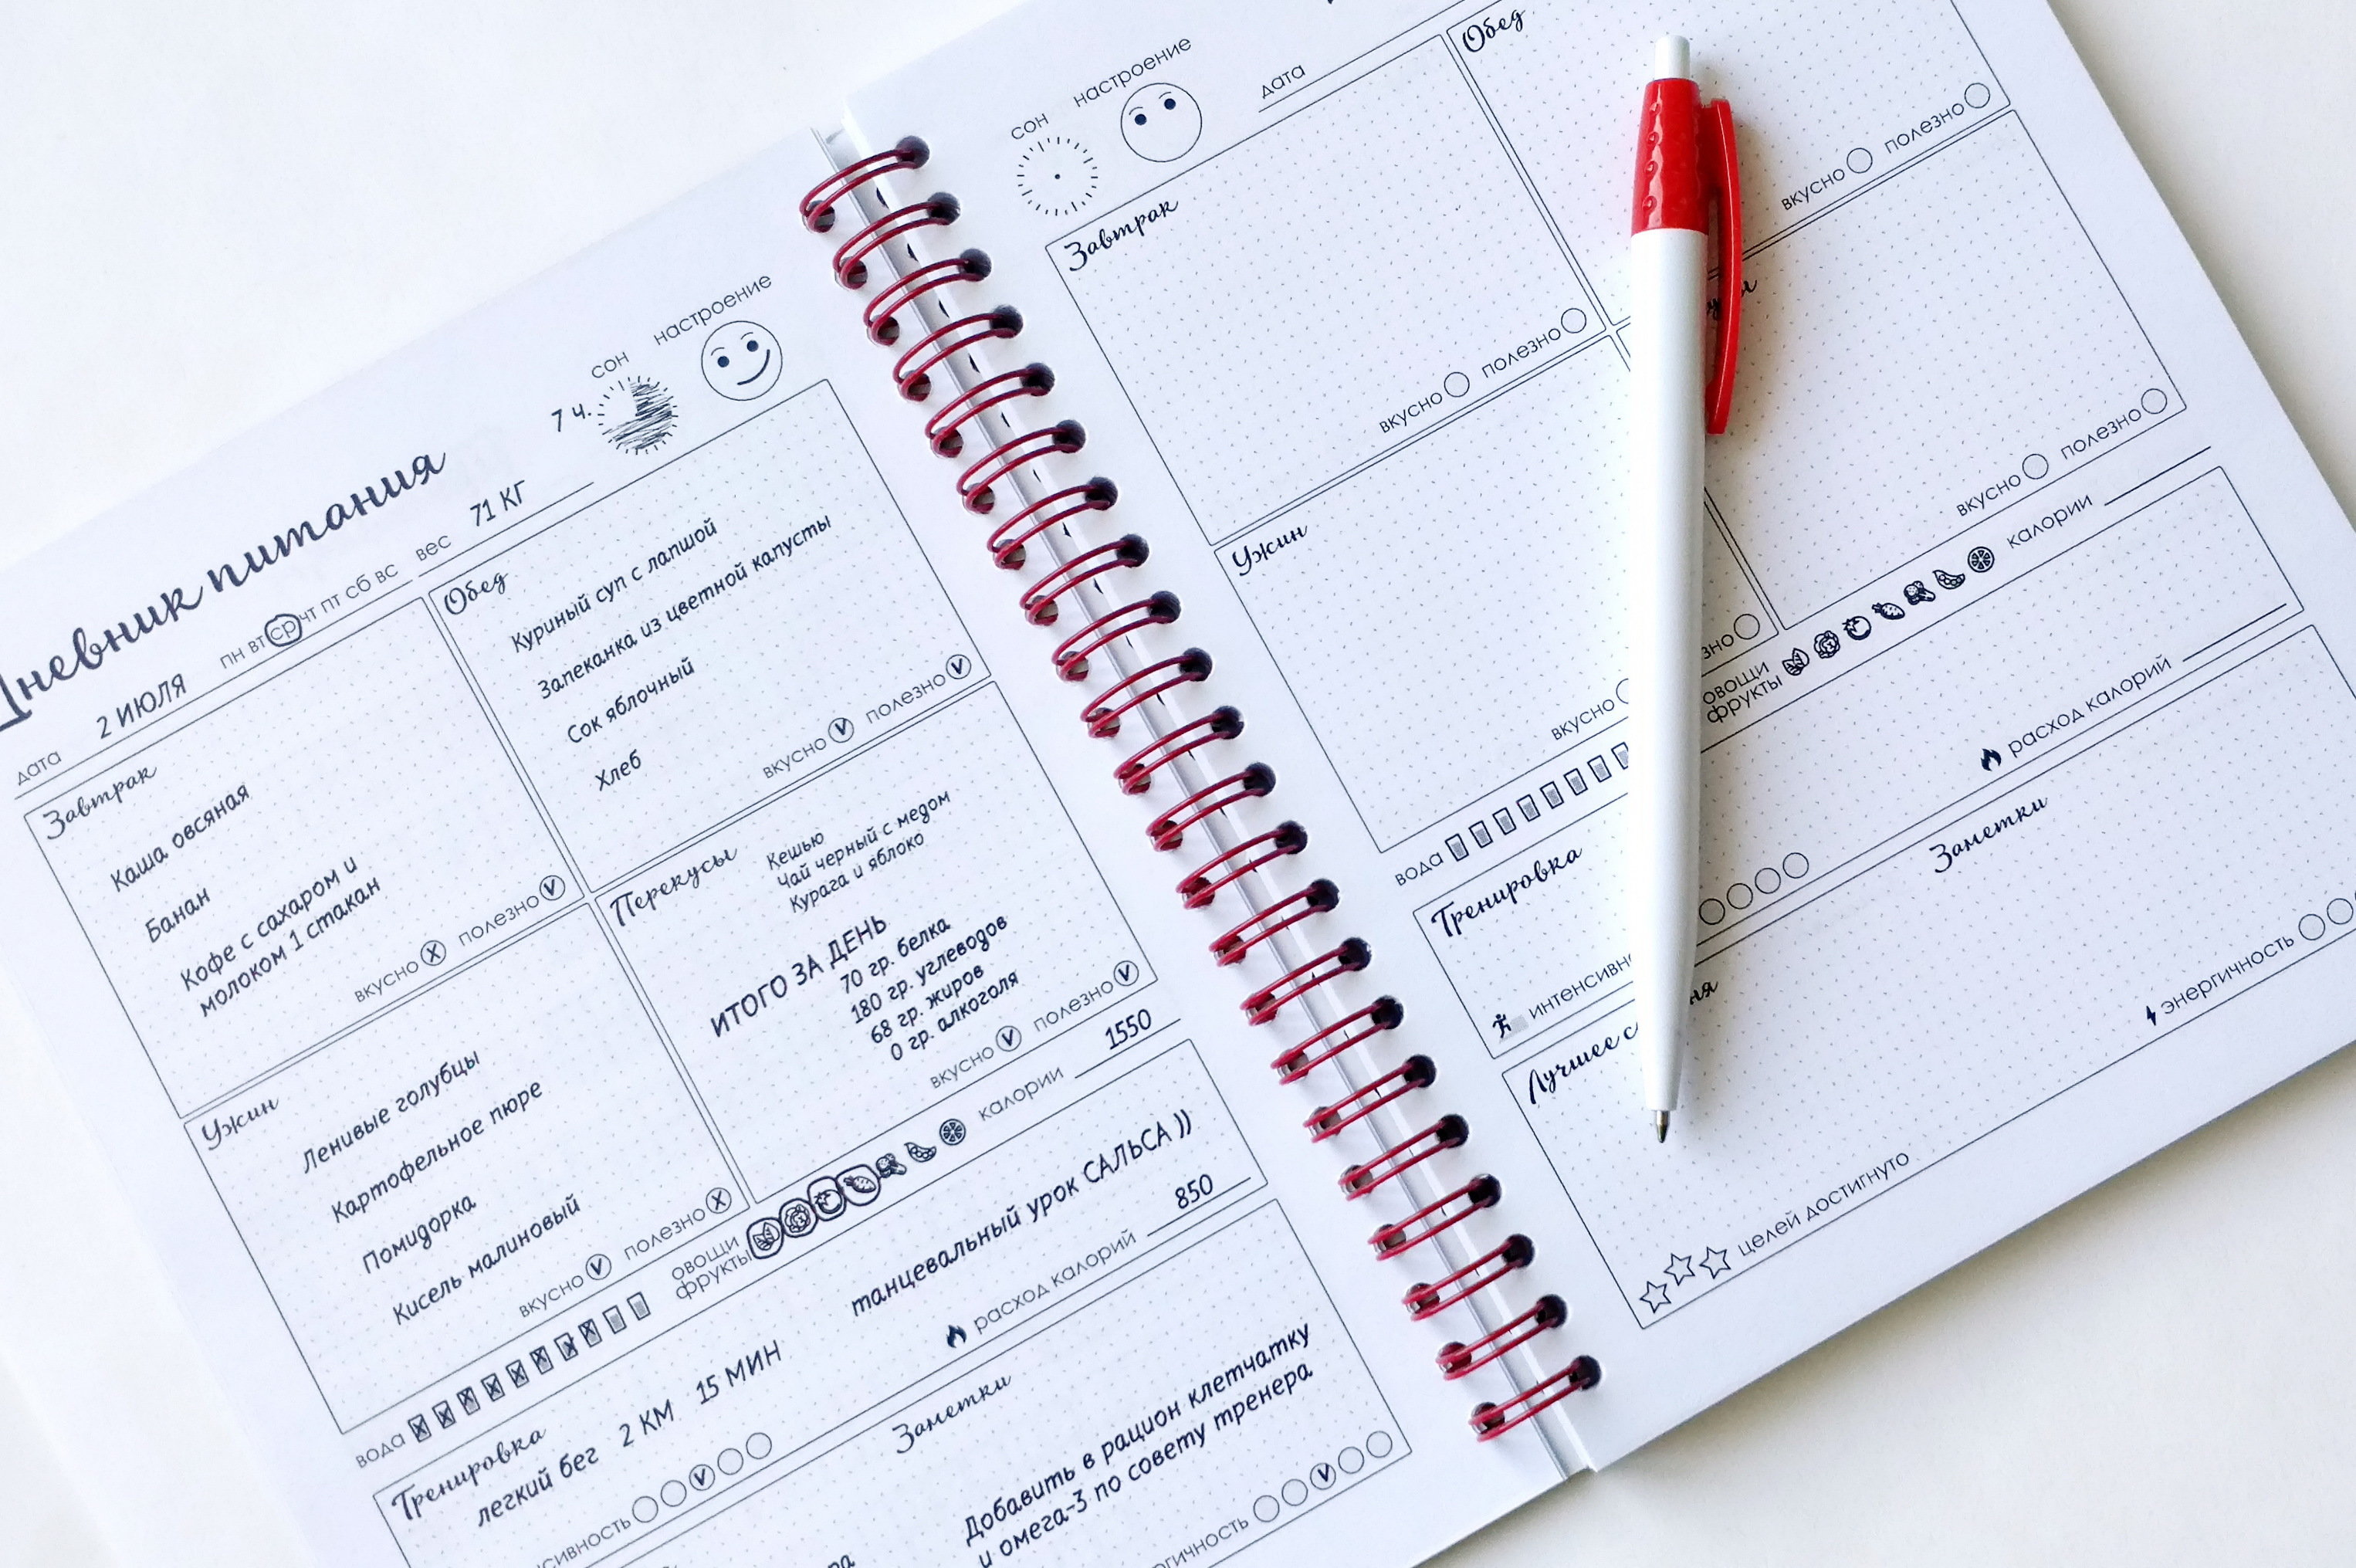 Дневник питания
сон
настроение
7 ч.
дата 2 ИЮЛЯ пн вт ср чт пт сб вс вес 71 КГ
Завтрак
Каша овсяная
Банан
Кофе с сахаром и
молоком 1 стакан
вкусно X полезно V
Обед
Куриный суп с лапшой
Запеканка из цветной капусты
Сок яблочный
Хлеб
вкусно V полезно V
Ужин
Ленивые голубцы
Картофельное пюре
Помидорка
Кисель малиновый
вкусно V полезно X
Перекусы
Кешью
Чай черный с медом
Курага и яблоко
ИТОГО ЗА ДЕНЬ
70 гр. белка
180 гр. углеводов
68 гр. жиров
0 гр. алкоголя
вкусно V полезно V
вода
овощи
фрукты
калории 1550
Тренировка
легкий бег 2 КМ 15 МИН
танцевальный урок САЛЬСА ))
расход калорий 850
Заметки
Добавить в рацион клетчатку
и омега-3 по совету тренера
сон
настроение
дата
Завтрак
вкусно полезно
Обед
вкусно полезно
Ужин
вкусно
вкусно полезно
вода
овощи
фрукты
калории
Тренировка
расход калорий
Лучшее
целей достигнуто
Заметки
энергичность